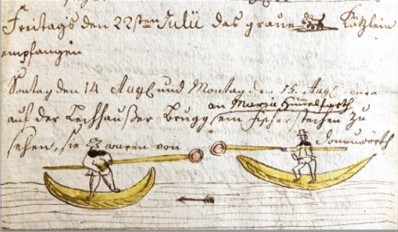 Freitags den 22sten Julü das graue Kützlein
empfangen
Sontag den 14 Augl und Montag den 15 Augl
an Maria Himelfarth
auf der Lechhaußer Brugg ein fischer stechen zu
sehen, sie waren von Donauwörth